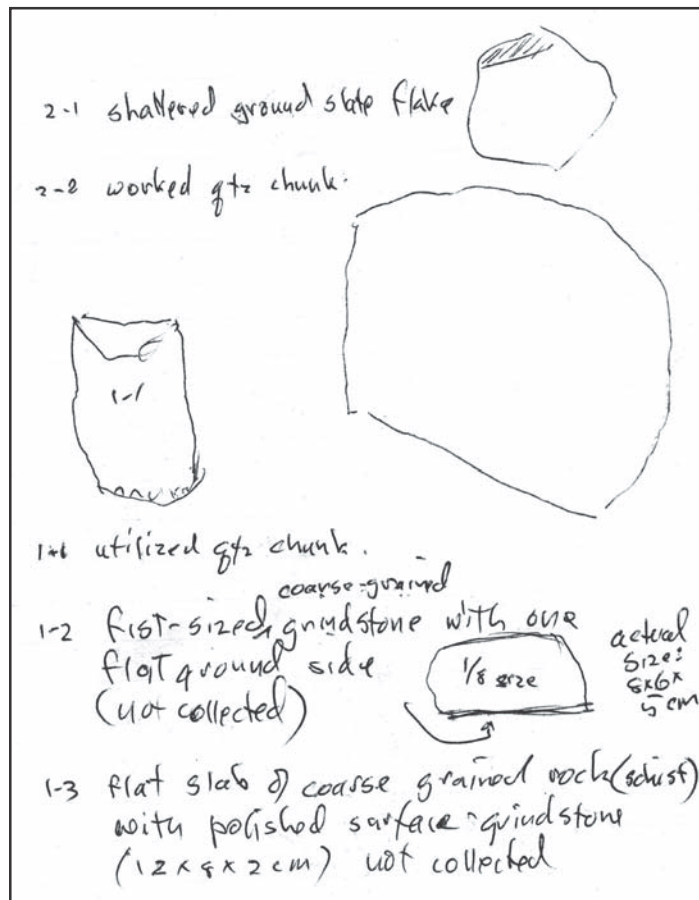 2-1 shattered ground slate flake
2-2 worked qtz chunk.
1-1
1-1 utilized qtz chunk.
coarse-grained
1-2 fist-sized, grindstone with one
flat ground side
(not collected)
1/8 size
actual
size:
8x6x
5 cm
1-3 flat slab of coarse grained rock (schist)
with polished surface - grindstone
(12 x 8 x 2 cm) not collected